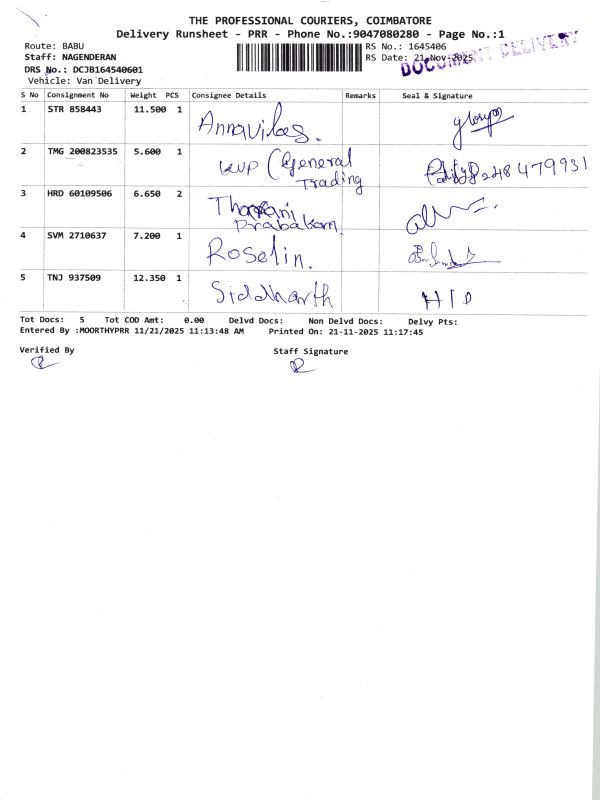 THE PROFESSIONAL COURIERS, COIMBATORE
Delivery Runsheet - PRR - Phone No.:9047080280 - Page No.:1
Route: BABU
RS No.: 1645406
Staff: NAGENDERAN
RS Date: 21-Nov-2025
DOCUMENT DELIVERY
DRS No.: DCJB164540601
Vehicle: Van Delivery
S No Consignment No Weight PCS Consignee Details Remarks Seal & Signature
1 STR 858443 11.500 1 Annavilas.
2 TMG 200823535 5.600 1 KVP (General
Trading 
3 HRD 60109506 6.650 2
Prabakom
4 SVM 2710637 7.200 1 Roselin.
5 TNJ 937509 12.350 1 Siddharth HID
Tot Docs: 5 Tot COD Amt: 0.00 Delvd Docs: Non Delvd Docs: Delvy Pts:
Entered By :MOORTHYPRR 11/21/2025 11:13:48 AM Printed On: 21-11-2025 11:17:45
Verified By Staff Signature